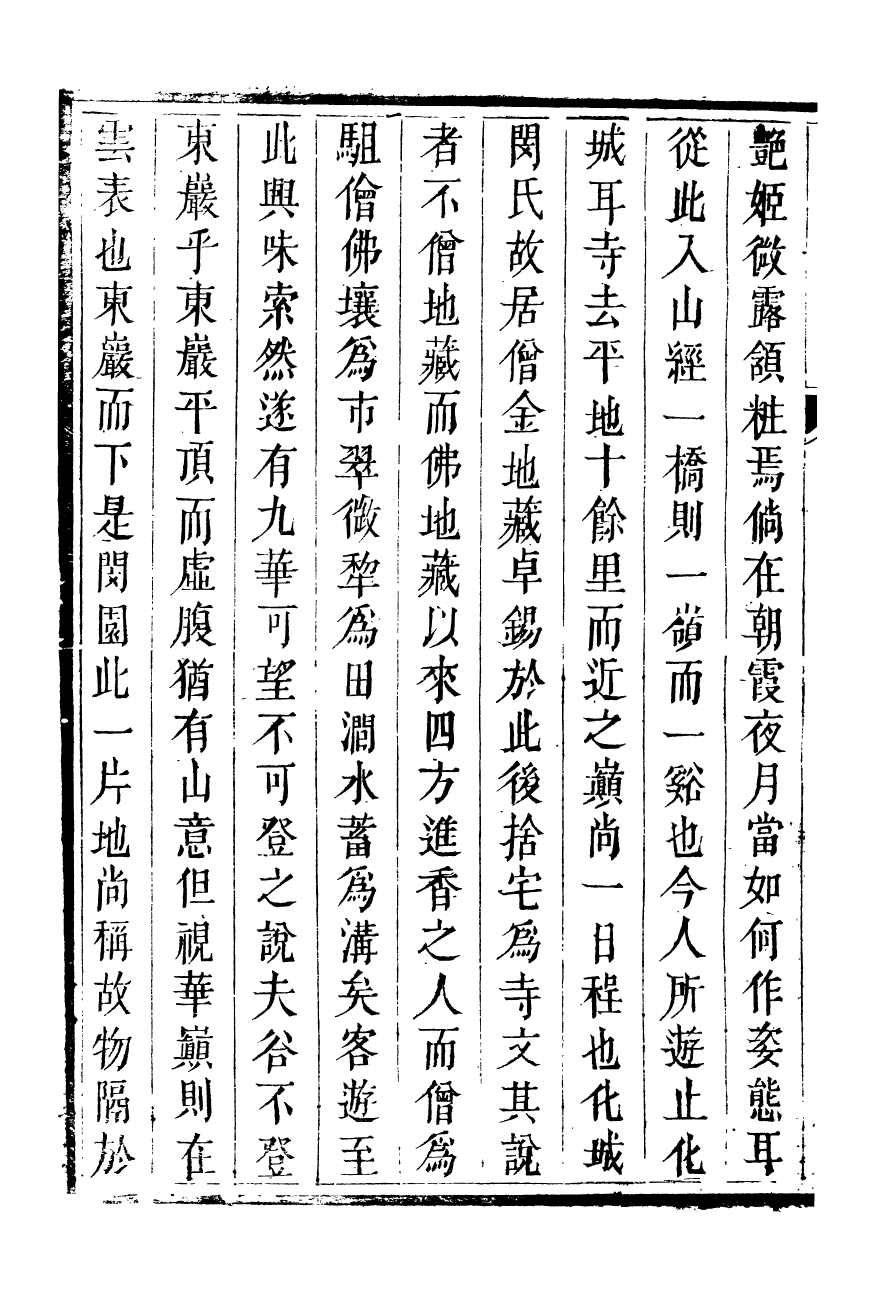 艶姬微露額粧焉倘在朝霞夜月當如何作姿態耳
從此入山經一橋則一嶺而一谿也今人所遊止化
城耳寺去平地十餘里而近之巔尚一日程也化城
閔氏故居僧金地藏卓錫於此後捨宅爲寺文其說
者不僧地藏而佛地藏以來四方進香之人而僧爲
駔儈佛壤爲市翠微犂爲田澗水蓄爲溝矣客遊至
此興味索然遂有九華可望不可登之說夫谷不登
東巖乎東巖平頂而虛腹猶有山意但視華巔則在
雲表也東巖而下是閔園此一片地尚稱故物隔於